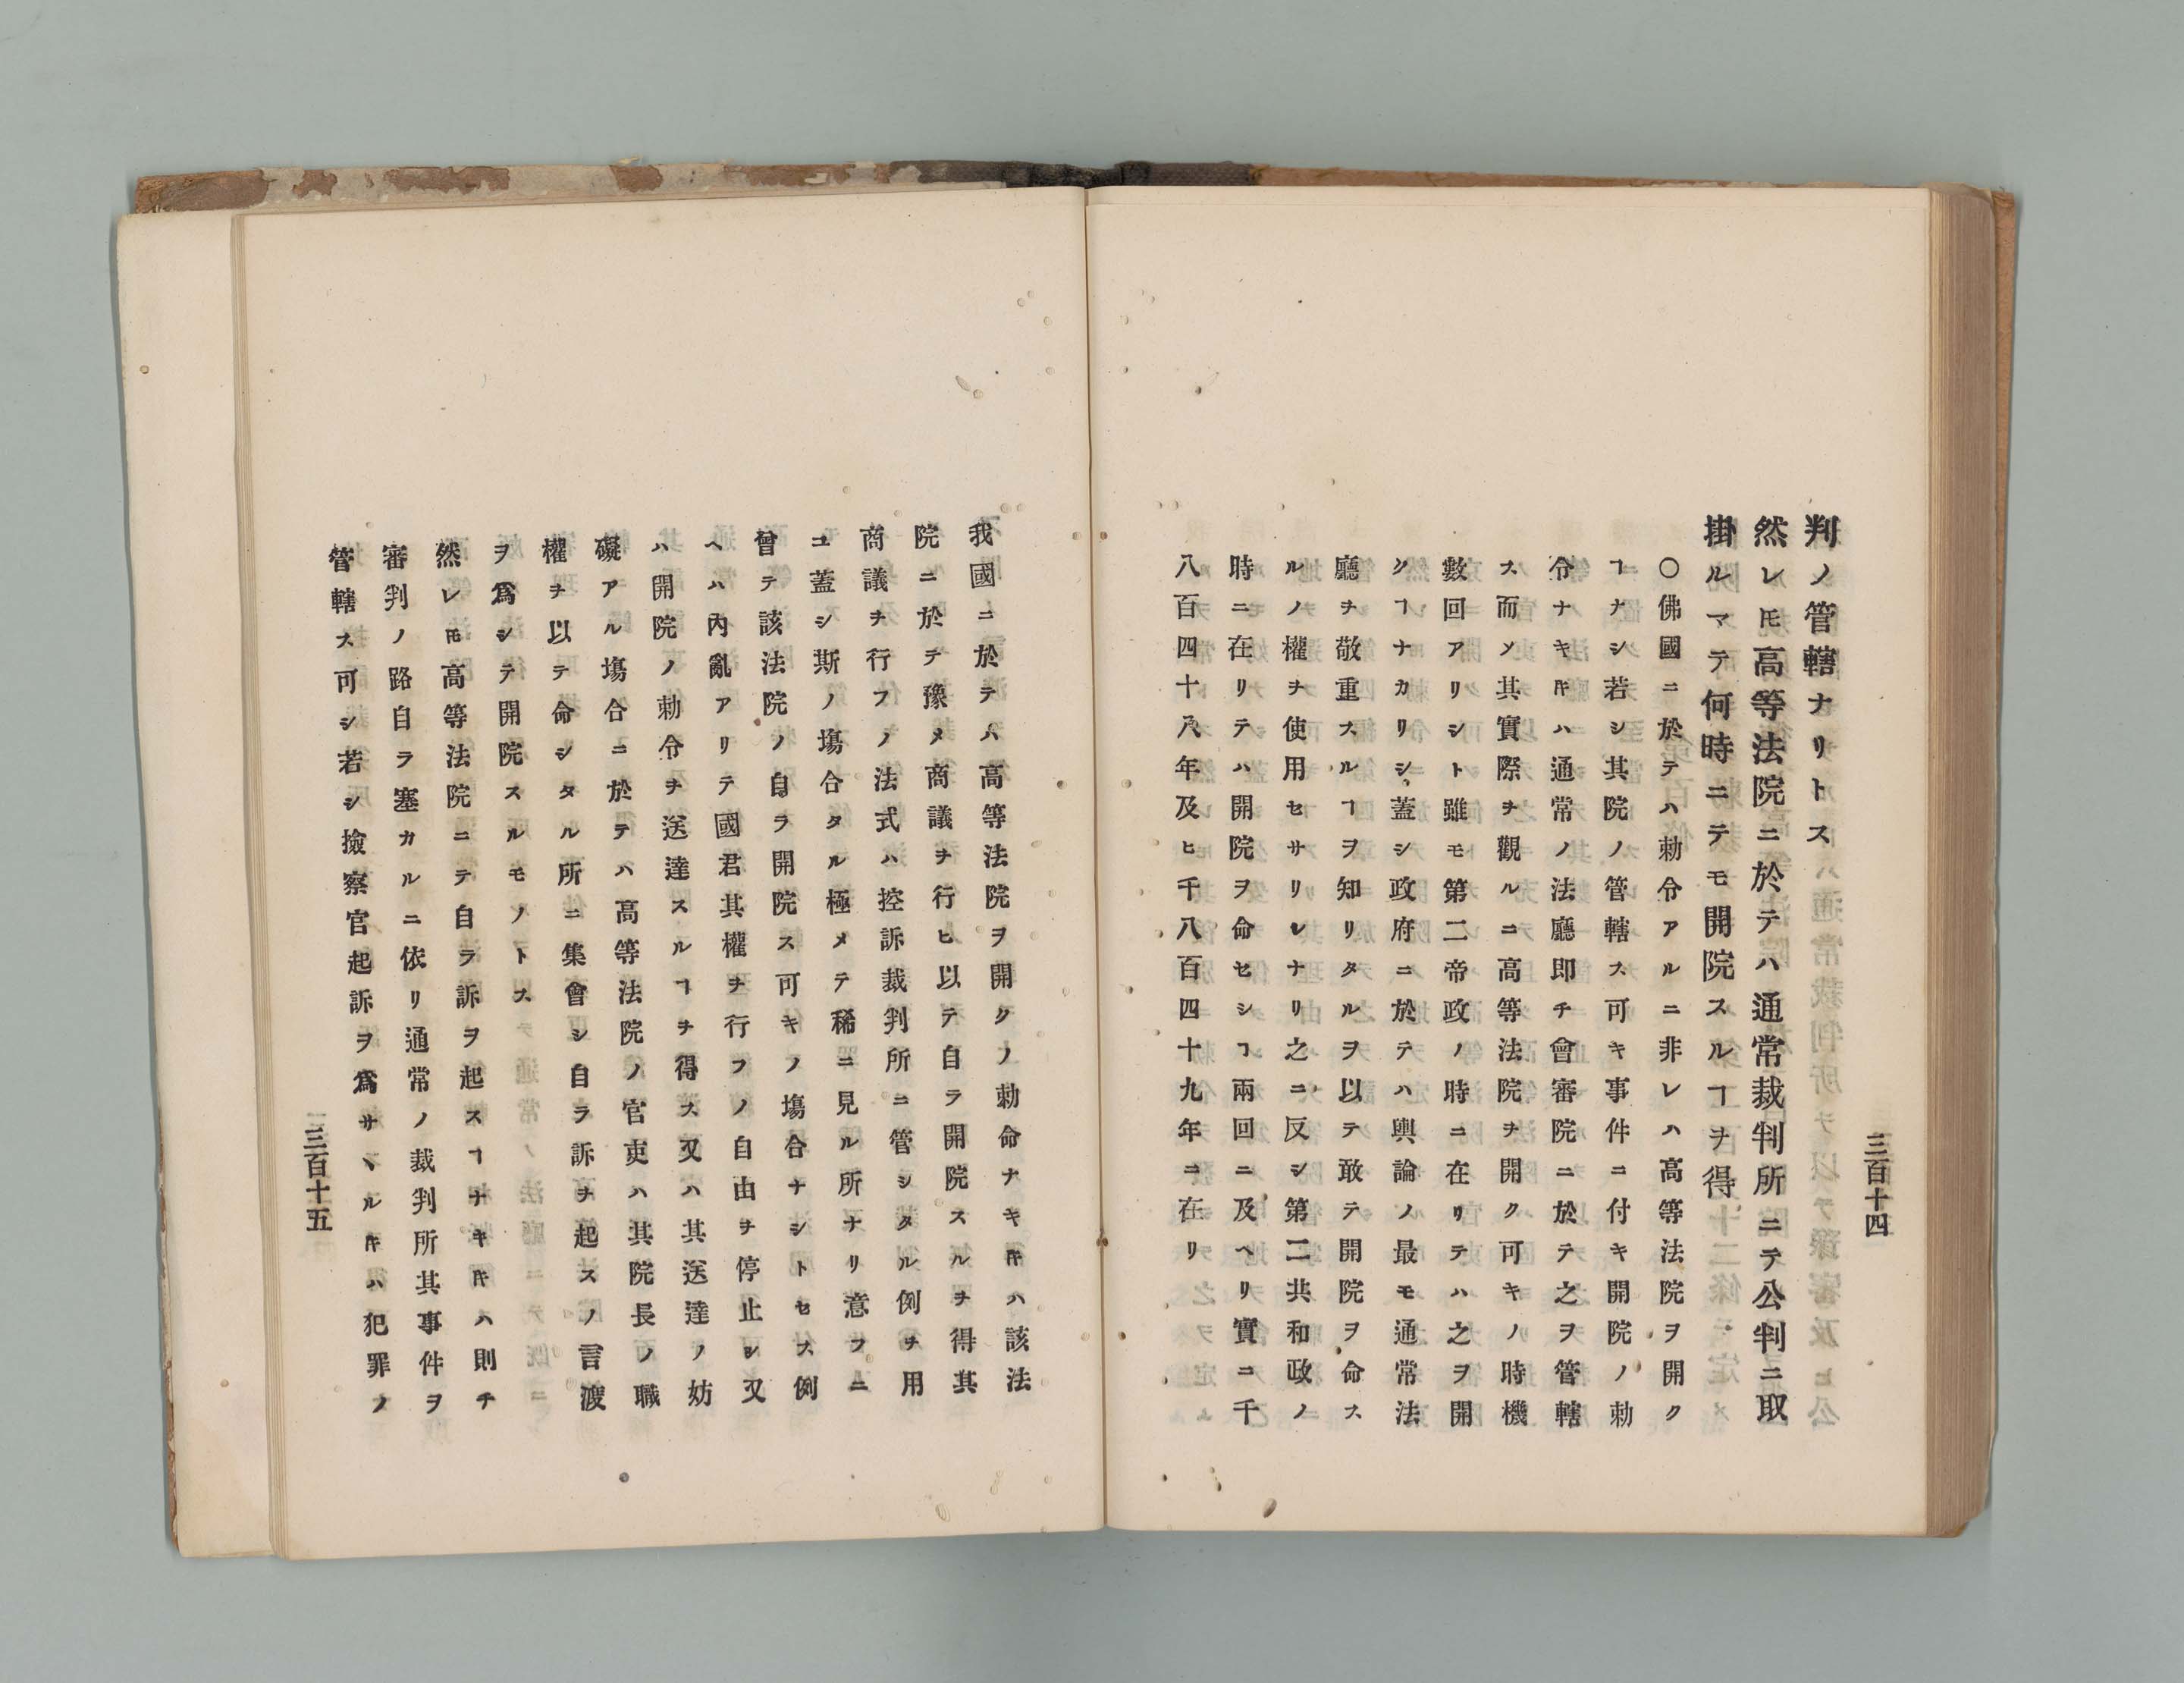 三百十四
判ノ管轄ナリトス
然レ𪜈高等法院ニ於テハ通常裁判所ニテ公判ニ取
掛ルマテ何時ニテモ開院スルヿヲ得
〇佛國ニ於テハ勅令アルニ非レハ高等法院ヲ開ク
ヿナシ若シ其院ノ管轄ス可キ事件ニ付キ開院ノ勅
令ナキ𪜈ハ通常ノ法廳即チ會審院ニ於テ之ヲ管轄
ス而〆其實際ヲ觀ルニ高等法院ヲ開ク可キノ時機
數回アリシト雖モ第二帝政ノ時ニ在リテハ之ヲ開
クヿナカリシ、蓋シ政府ニ於テハ輿論ノ最モ通常法
廳ヲ敬重スルヿヲ知リタルヲ以テ敢テ開院ヲ命ス
ルノ權ヲ使用セサリレナリ之ニ反シ第二共和政ノ
時ニ在リテハ開院ヲ命セシヿ兩回ニ及ヘリ實ニ千
八百四十八年及ヒ千八百四十九年ニ在リ
我國ニ於テハ高等法院ヲ開クノ勅命ナキ𪜈ハ該法
院ニ於テ豫メ商議ヲ行ヒ以テ自ラ開院スルヲ得其
商議ヲ行フノ法式ハ控訴裁判所ニ管シタル例ヲ用
ユ蓋シ斯ノ塲合タル極メテ稀ニ見ル所ナリ意フニ
曾テ該法院ノ自ラ開院ス可キノ塲合ナシトセス例
ヘハ內亂アリテ國君其權ヲ行フノ自由ヲ停止シ又
ハ開院ノ勅令ヲ送達スルヿヲ得ス又ハ其送達ノ妨
礙アル塲合ニ於テハ高等法院ノ官吏ハ其院長ノ職
權ヲ以テ命シタル所ニ集會シ自ラ訴ヲ起スノ言渡
ヲ爲シテ開院スルモノトス
然レ𪜈高等法院ニテ自ラ訴ヲ起スヿナキ𪜈ハ則チ
審判ノ路自ラ塞カルニ依リ通常ノ裁判所其事件ヲ
管轄ス可シ若シ撿察官起訴ヲ爲サヽル𪜈ハ犯罪ノ
三百十五